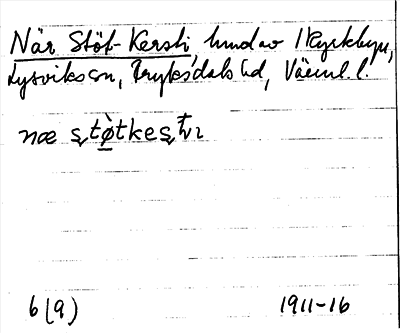 När Stöt-Kersti hemd av Kyrkbyn,
Lysviks sn, Fryksdals hd, Värml. l.
næ stø̀tkesti
6(9) 1911-16